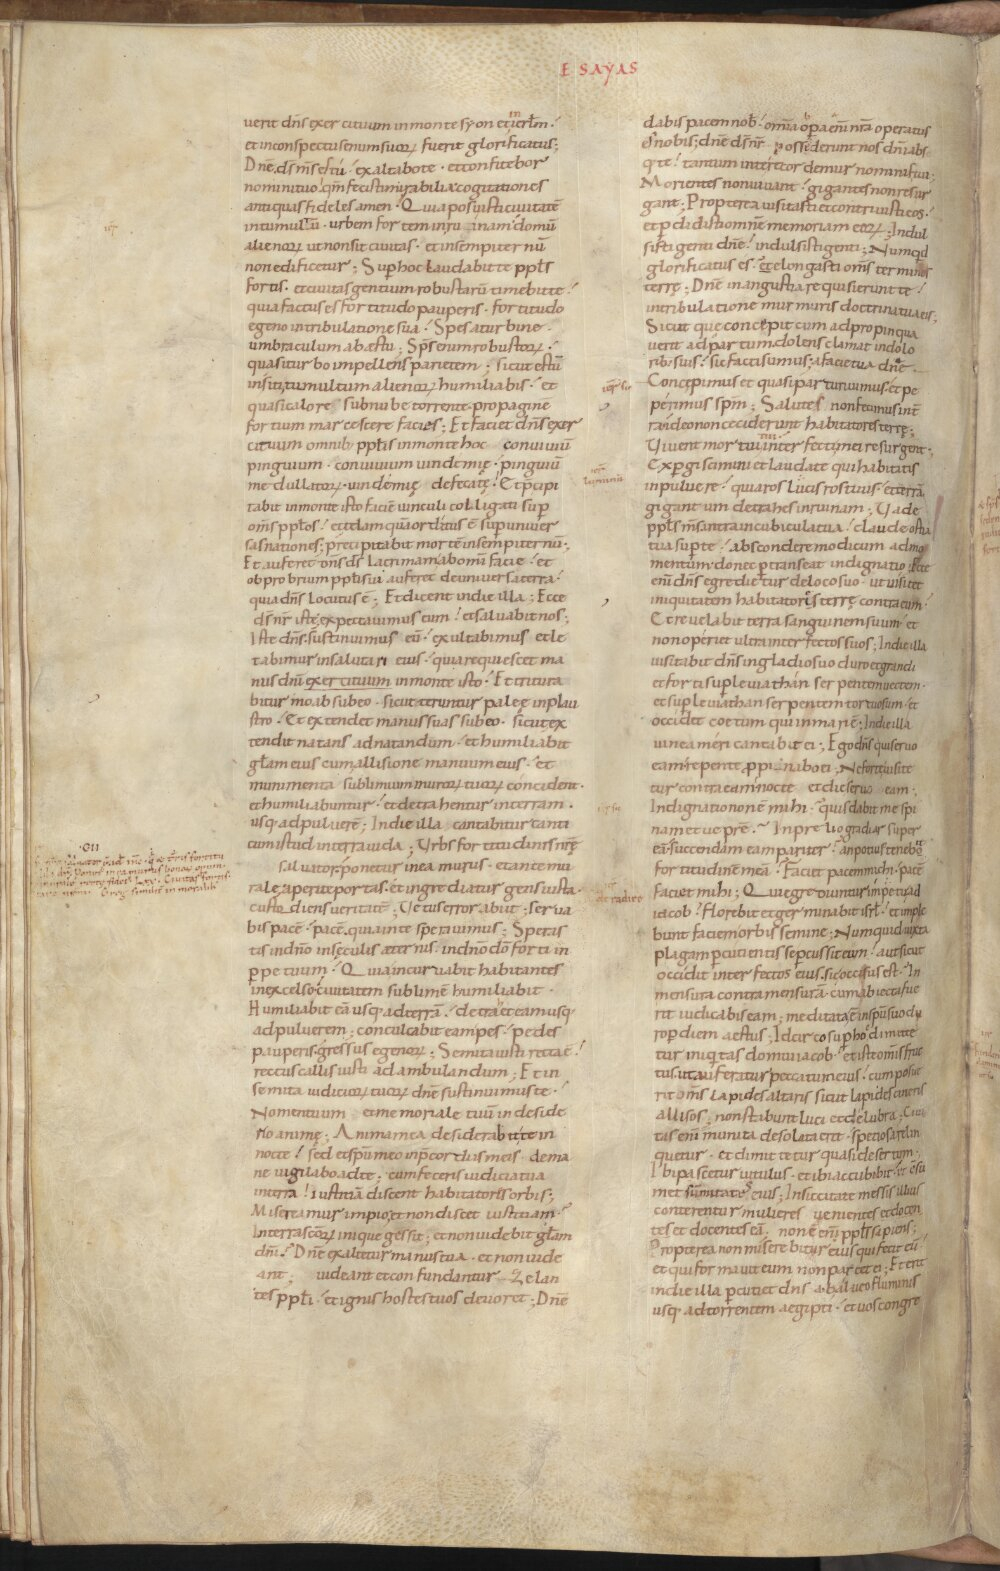 ESAYAS
uerit dn̄s exercituum in monte syon et in ierl̄m·
et in conspectu senum suoꝝ fuerit glorificatus;
Dn̄e d̄s m̄s es tu· exaltabo te· et confitebor
nomini tuo· qm̄ fecisti mirabilia cogitationes
antiquas fideles amen· Quia posuisti ciuitatē
in tumultū· urbem fortem in ruinam· domū
alienoꝝ ut non sit ciuitas· et in sempiternū
non edificetur; Sup̄ hoc laudabit te ppl̄s
fortis· et ciuitas gentium robustarū timebit te·
quia factus es fortitudo pauperis· fortitudo
egeno in tribulatione sua· Spes a turbine·
umbraculum ab æstu; Sp̄s enim robustoꝝ·
quasi turbo impellens parietem; sicut estū
in siti· tumultum alienoꝝ humiliabis· et
quasi calore sub nube torrente propaginē
fortium marcescere facies; Et faciet dn̄s exer
cituum omnib; ppl̄is in monte hoc conuiuiū
pinguium· conuiuium uindemię· pinguiū
medullatoꝝ· uindemię defecatę· Et p̄cipi
tabit in monte isto faciē uinculi colligati sup̄
om̄s ppl̄os· et telam quā orditus ē sup̄ uniuer
sas nationes; precipitabit mortē in sempiternū·
Et auferet dn̄s d̄s lacrimam ab omī facie· et
obprobrium ppl̄i sui auferet de uniuersa terra·
quia dn̄s locutus ē; Et dicent in die illa; Ecce
d̄s nr̄ iste expectauimus eum· et saluabit nos;
Iste dn̄s· sustinuimus eū· exultabimus et le
tabimur in salutari eius· quia requiescet ma
nus dnī exercituum in monte isto· Et tritura
bitur moab sub eo· sicut teruntur palee in plau
stro· Et extendet manus suas sub eo· sicut ex
tendit natans ad natandum· et humiliabit
gl̄am eius cum allisione manuum eius· et
munimenta sublimium muroꝝ tuoꝝ concident·
et humiliabuntur· et detrahentur in terram·
usq; ad puluerē; In die illa cantabitur canti
cum istud in terra iuda; Urbs fortitudinis nr̄ę
saluator· ponetur in ea murus· et ante mu
rale· aperite portas· et ingrediatur gens iusta·
custodiens ueritatē; Uetus error abiit; serua
bis pacē· pacē· quia in te sperauimus; Speras
tis in dn̄o in sęculis æternis· in dn̄o dō forti in
ppetuum· Quia incuruabit habitantes
in excelso· ciuitatem sublimē humiliabit·
Humiliabit eā usq; ad terrā· detrahet eam usq;
ad puluerem; conculcabit eam pes· pedes
pauperis· gressus egenoꝝ; Semita iusti recta ē·
rectus callis iusti ad ambulandum; Et in
semita iudicioꝝ tuoꝝ dn̄e sustinuimus te·
Nomen tuum et memoriale tuū in deside
rio animę; Anima mea desiderabit te in
nocte· sed et spū meo in p̄cordiis meis de ma
ne uigilabo ad te· cum feceris iudicia tua
in terra· iustitiā discent habitatores orbis;
Misereamur impio· et non discet iustitiam·
In terra scōꝝ inique gessit· et non uidebit gl̄am
dnī· Dn̄e exaltetur manus tua· et non uide
ant; uideant et confundantur Zelan
tes ppl̄i· et ignis hostes tuos deuoret; Dn̄e
dabis pacem nob̄· omīa opa enī nr̄a operatus
es nobis; dn̄e d̄s nr̄ possederunt nos dnī abs
q; te· tantum in te recordemur nominis tui;
Morientes non uiuant· gigantes non resur
gant· Propterea uisitasti et contriuisti eos·
et pdidisti omnē memoriam eoꝝ; Indul
sisti genti dn̄e· indulsisti genti; Numqd
glorificatus es· elongasti om̄s terminos
terrę; Dn̄e in angustia requisierunt te·
in tribulatione murmuris doctrina tua eis;
Sicut que concepit cum adpropinqua
uerit ad partum dolens clamat in dolo
ribus suis· sic facti sumus a facie tua dn̄e
Concepimus et quasi parturiuimus· et pe
perimus spm̄; Salutes non fecimus in t̄
ra· ideo non ceciderunt habitatores terrę;
Uiuent mortui tui· interfecti mei resurgent;
Expergiscimini et laudate qui habitatis
in puluere· quia ros lucis ros tuus· et terrā
gigantum detrahes in ruinam; Uade
ppl̄s m̄s intra in cubicula tua· claude ostia
tua sup̄ te· abscondere modicum ad mo
mentum· donec ptranseat indignatio· Ecce
enī dn̄s egredietur de loco suo ut uisitet
iniquitatem habitatoris terrę contra eum·
Et reuelabit terra sanguinem suum· et
non operiet ultra interfectos suos; In die illa
uisitabit dn̄s in gladio suo duro et grandi
et forti sup̄ leuiathan serpentem uectem·
et sup̄ leuiathan serpentem tortuosum· et
occidet coetum qui in mari ē; In die illa
uinea meri cantabit ei; Ego dn̄s qui seruo
eam· repente ppinabo ei· Ne forte uisite
tur contra eam· nocte et die seruo eam·
Indignatio non ē mihi· quis dabit me spi
nam et ueprē· In prelio gradiar super
eā· succendam eam pariter· an potius tenebit
fortitudinē meā· Faciet pacem mihi· pacē
faciet mihi; Qui egrediuntur impetu ad
iacob· Florebit et germinabit isrl̄· et imple
bunt faciem orbis semine; Numquid iuxta
plagam pcutientis se pcussit eum· aut sicut
occidit interfectos eius· sic occisus est· In
mensura contra mensurā· cum abiecta fue
rit iudicabis eam; meditatus ē in spū suo du
ro p diem aestus; Idcirco sup̄ hoc dimitte
tur iniq̄tas domui iacob· et iste omīs fruc
tus· ut auferatur peccatum eius· cum posue
rit om̄s lapides altaris sicut lapides cineris
allisos; non stabunt luci et delubra; Ciui
tas enī munita desolata erit· speciosa relin
quetur· et dimittetur quasi desertum·
Ibi pascetur uitulus· et ibi accubabit· et cōsu
met sūmitates eius; In siccitate messis illius
conterentur mulieres uenientes et docen
tes et docentes eā· non ē enī ppl̄s sapiens;
Propterea non miserebitur eius qui fecit eū·
et qui formauit eum non parcet ei; Et erit
in die illa pcutiet dn̄s ab alueo fluminis
usq; ad torrentem aegipti· et uos congre